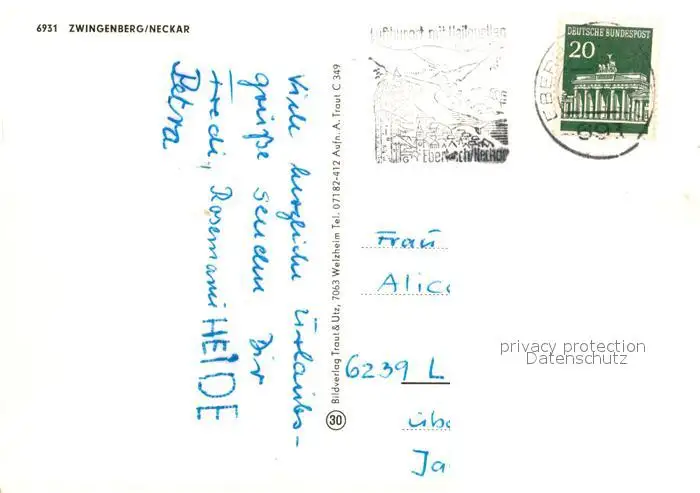 6931 ZWINGENBERG/NECKAR
Viele herzliche Urlaubs-
grüße senden Dir
Fredi, Rosemarie HEIDE
Petra
Bildverlag Traut & Utz, 7063 Welzheim Tel. 07182-412 Aufn. A. Traut C 349
30
Luftkurort mit Heilquellen
Eberbach/Neckar
DEUTSCHE BUNDESPOST
20
EBER
693
Frau
Alice
6239 L
übe
Ja
privacy protection
Datenschutz